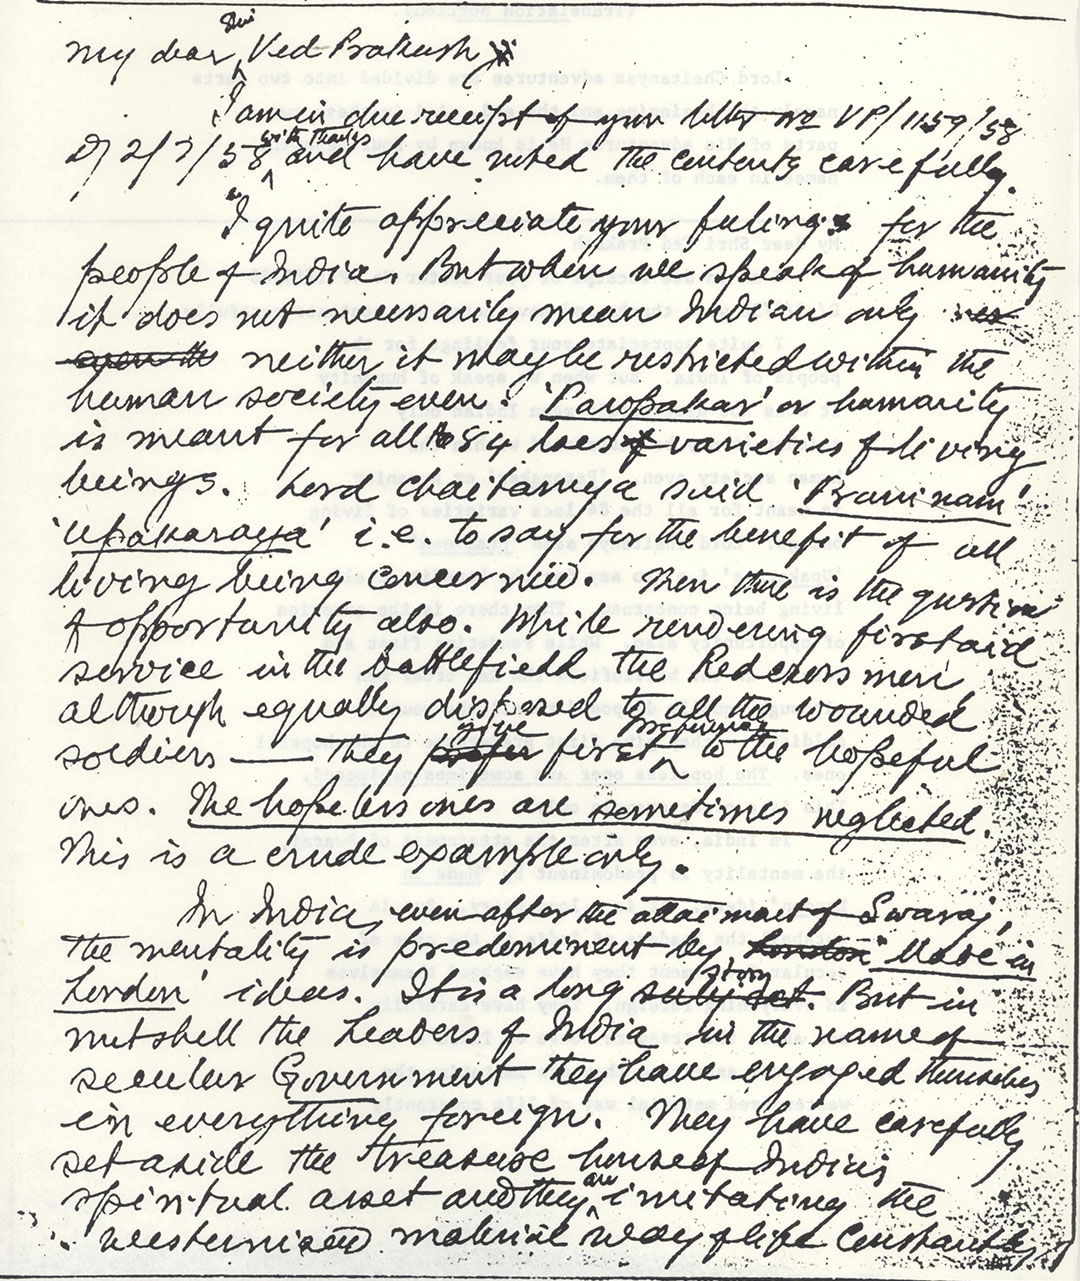 My dear Shri Ved Prakash,
I am in due receipt of your letter no VP/1159/58
D/ 2/7/58 with thanks and have noted the contents carefully.
I quite appreciate your feelings for the
people of India. But when we speak of humanity
it does not necessarily mean Indian only
neither it may be restricted within the
human society even. 'Paropakar' or humanity
is meant for all the 84 lacs of varieties of living
beings. Lord Chaitanya said 'Praninam'
'Upakaraya' i.e. to say for the benefit of all
living being concerned. Then there is the question
of opportunity also. While rendering first aid
service in the battlefield, the Redcross men
although equally disposed to all the wounded
soldiers — they give first preference to the hopeful
ones. The hopeless ones are sometimes neglected.
This is a crude example only.
In India, even after the attainment of Swaraj,
the mentality is predominent by 'Made in
London' ideas. It is a long story. But in
nutshell the leaders of India in the name of
secular Government they have engaged themselves
in everything foreign. They have carefully
set aside the treasure house of India's
spiritual asset and they are imitating the
westernised material way of life constantly